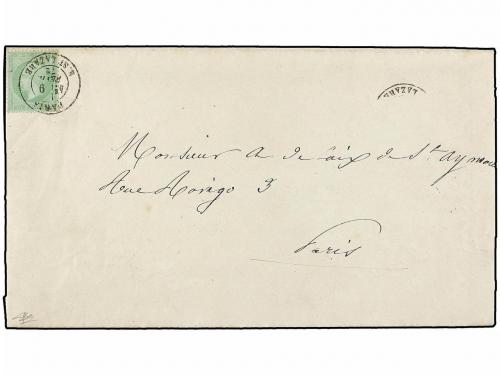 PARIS
R. ST LAZARE
LAZARE
Monsieur A de Caix de St. Aymour
Rue Rovigo 3
Paris